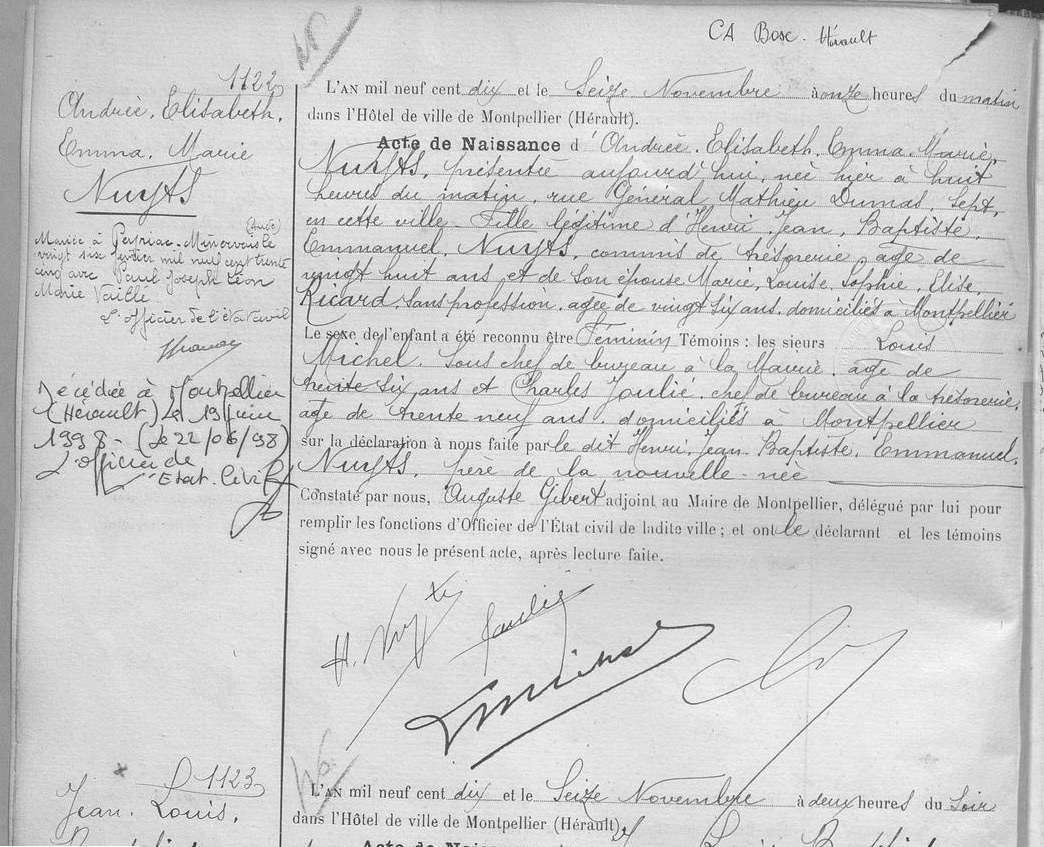 CA Bosc. Hérault
1122
Andrée, Elisabeth,
Emma, Marie
Nuyts
Mariée à Peyriac-Minervois le (Aude)
vingt six Février mil neuf cent trente
cinq avec Paul Joseph Léon
Marie Vaille
L'officier de l'état civil
Décédée à Montpellier
(Hérault) Le 19 juin
1998 - (Le 22/06/98)
L'officier de
Etat. Civil
L'AN mil neuf cent dix et le Seize Novembre à onze heures du matin
dans l'Hôtel de ville de Montpellier (Hérault).
Acte de Naissance d'Andrée, Elisabeth, Emma, Marie,
Nuyts, présentée aujourd'hui, née hier à huit
heures du matin, rue Général Mathieu Dumas, sept,
en cette ville. Fille légitime d'Henri, Jean, Baptiste,
Emmanuel, Nuyts, commis de trésorerie, âgé de
vingt huit ans et de son épouse Marie, Louise, Sophie, Elise,
Ricard, sans profession, âgée de vingt six ans, domiciliés à Montpellier
Le sexe de l'enfant a été reconnu être Féminin Témoins : les sieurs Louis
Michel, Sous chef de bureau à la Mairie, âgé de
trente six ans et Charles Joulié, chef de bureau à la trésorerie,
âgé de trente neuf ans, domiciliés à Montpellier
sur la déclaration à nous faite par le dit Henri, Jean, Baptiste, Emmanuel,
Nuyts, père de la nouvelle-née
Constaté par nous, Auguste Gibert adjoint au Maire de Montpellier, délégué par lui pour
remplir les fonctions d'Officier de l'État civil de ladite ville ; et ont le déclarant et les témoins
signé avec nous le présent acte, après lecture faite.
H. Nuyts
Joulié
L Michel
1123
Jean, Louis,
L'AN mil neuf cent dix et le Seize Novembre à deux heures du Soir
dans l'Hôtel de ville de Montpellier (Hérault)
Acte de Naissance